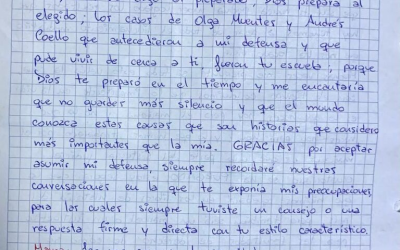 preparado, Dios prepara al
elegido; los casos de Olga Muentes y Andrés
Coello que antecedieron a mi defensa y que
pude vivir de cerca a ti, fueron tu escuela, porque
Dios te preparó en el tiempo y me encantaría
que no guardes más silencio y que el mundo
conozca estas causas que son historias que considero
más importantes que la mía. GRACIAS por aceptar
asumir mi defensa, siempre recordaré nuestras
conversaciones en la que te exponía mis preocupaciones
para las cuales siempre tuviste un consejo o una
respuesta firme y directa con tu estilo característico.